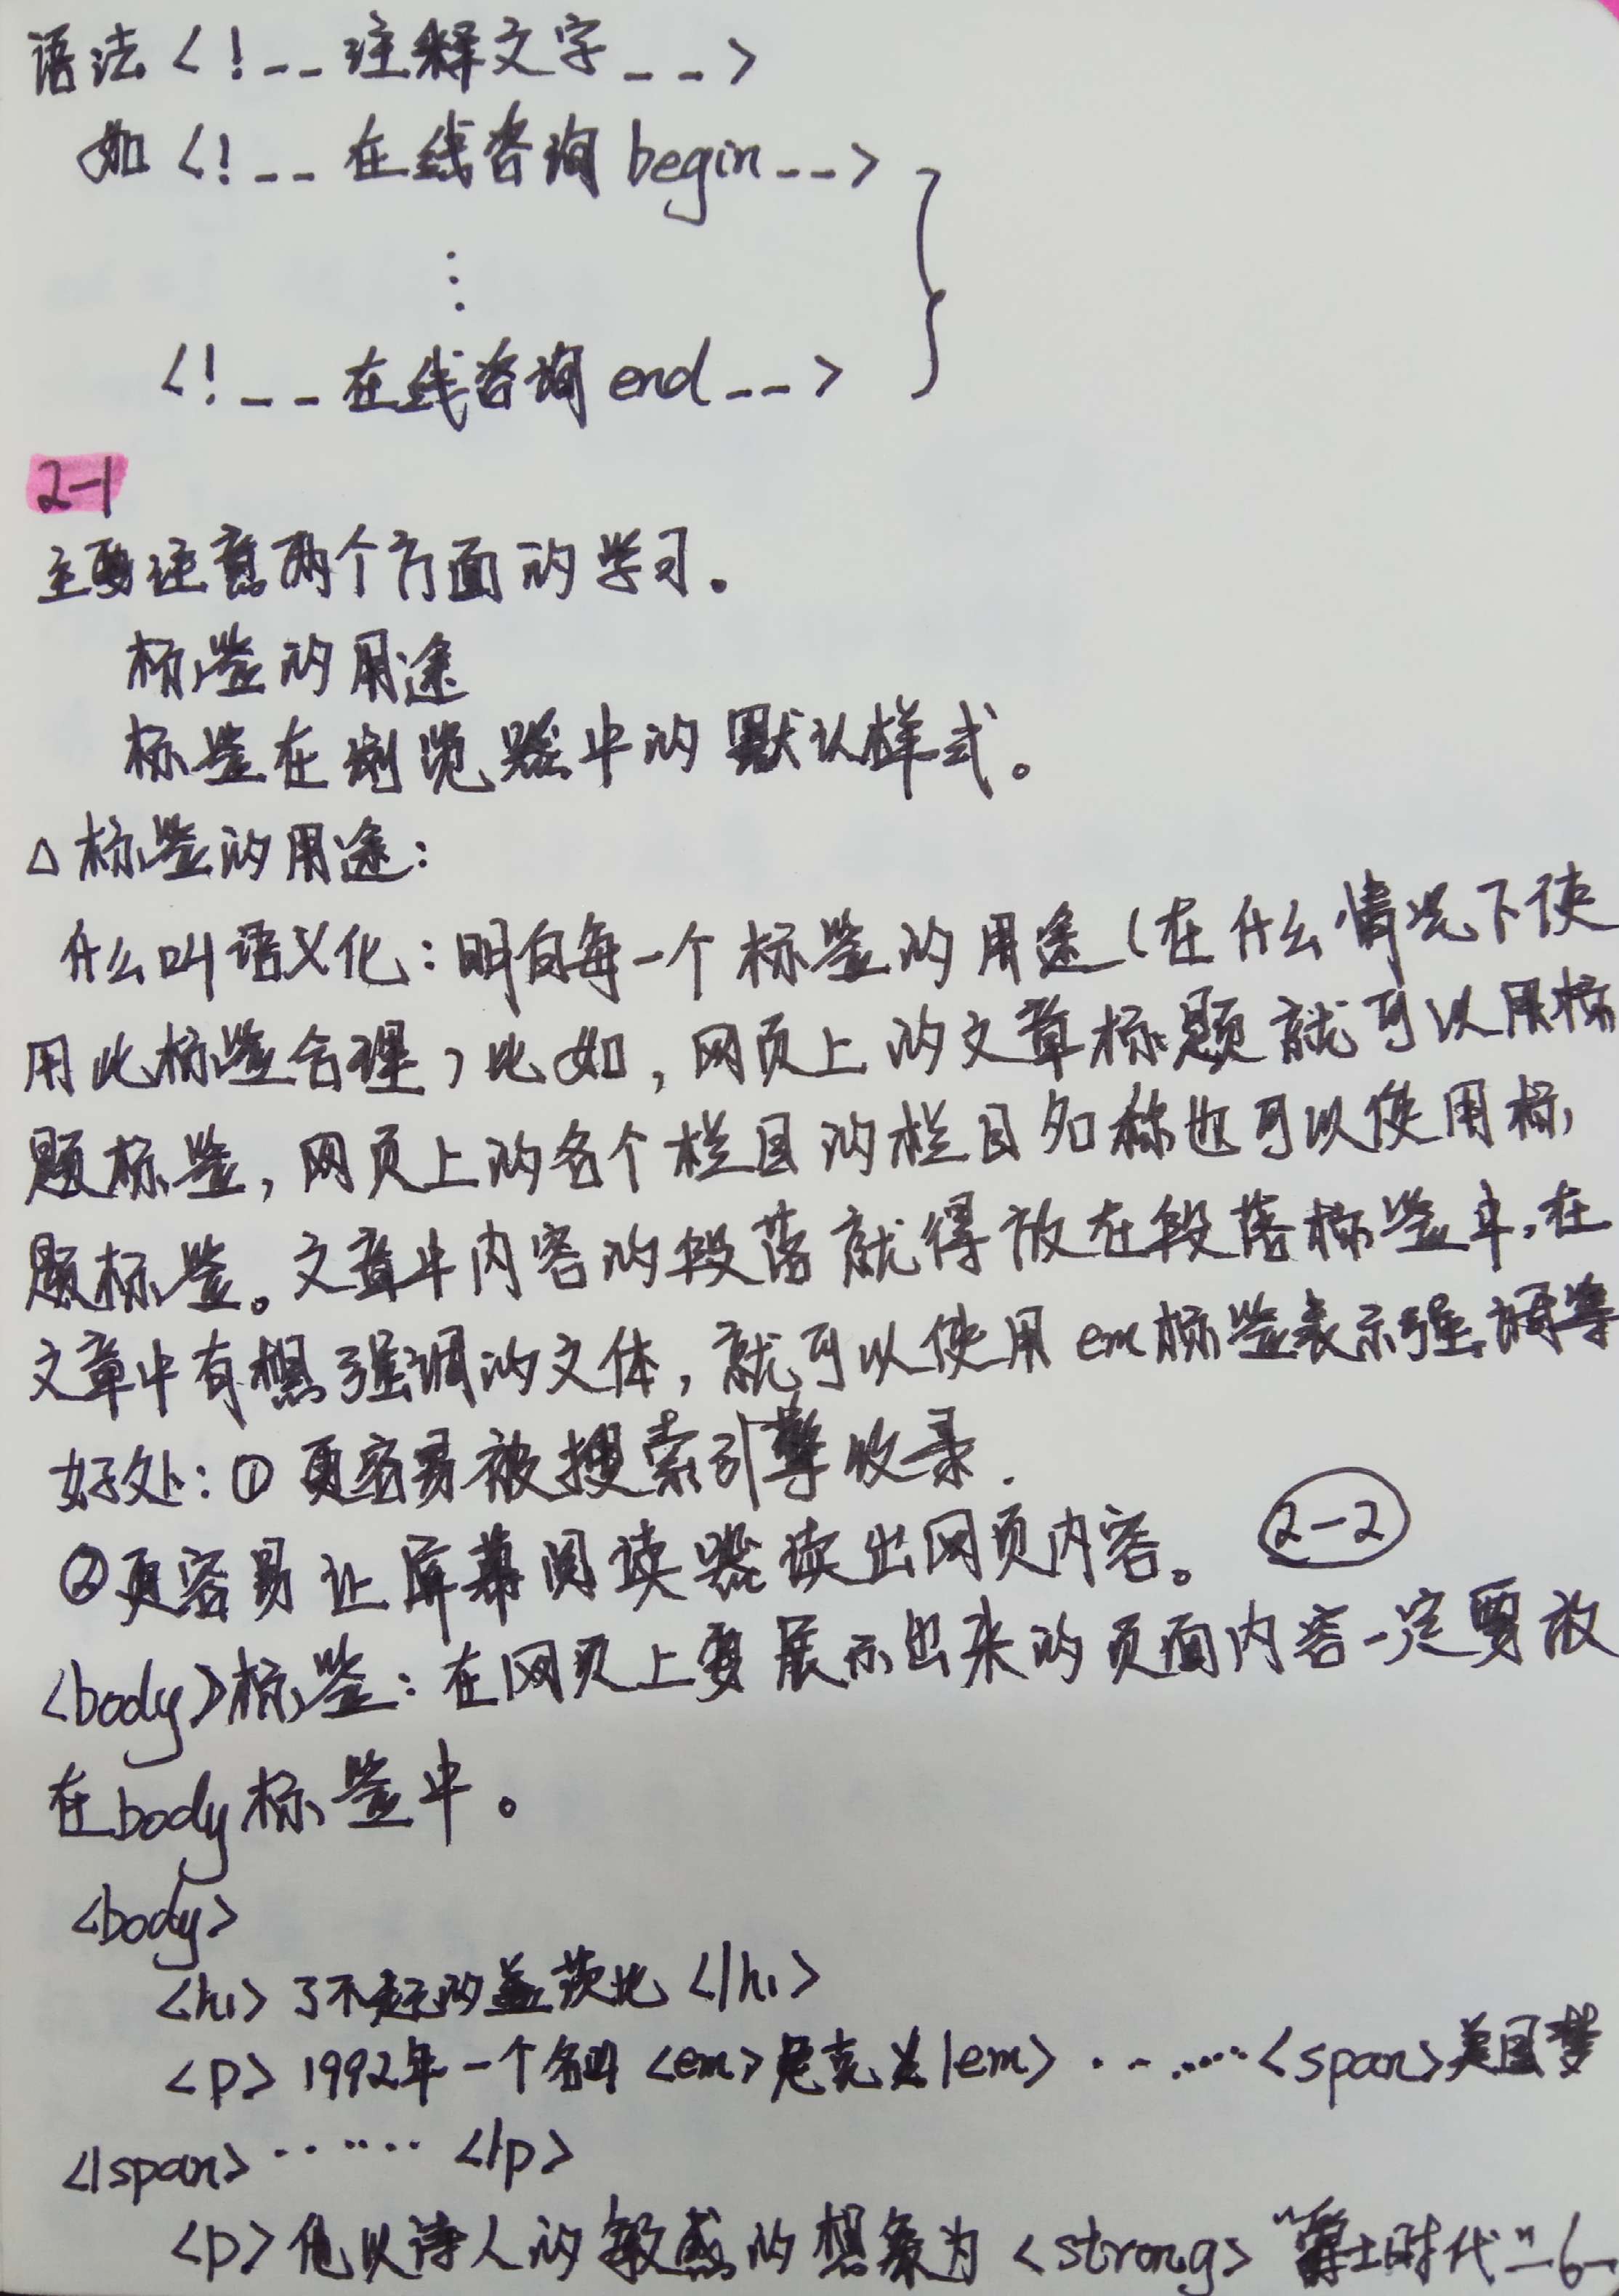 语法 <!-- 注释文字 -->
如 <!-- 在线咨询 begin -->
⋮
<!-- 在线咨询 end -->
2-1
主要注意两个方面的学习。
标签的用途
标签在浏览器中的默认样式。
△标签的用途：
什么叫语义化：明白每一个标签的用途（在什么情况下使
用此标签合理）比如，网页上的文章标题就可以用标
题标签，网页上的各个栏目的栏目名称也可以使用标
题标签。文章中内容的段落就得放在段落标签中，在
文章中有想强调的文体，就可以使用em标签表示强调等
好处：① 更容易被搜索引擎收录.
②更容易让屏幕阅读器读出网页内容。 2-2
<body>标签：在网页上要展示出来的页面内容一定要放
在body标签中。
<body>
<h1>了不起的盖茨比</h1>
<p>1992年一个名叫<em>尼克</em>……<span>美国梦
</span>……</p>
<p>他以诗人的敏感的想象为<strong>“爵士时代”
-6-